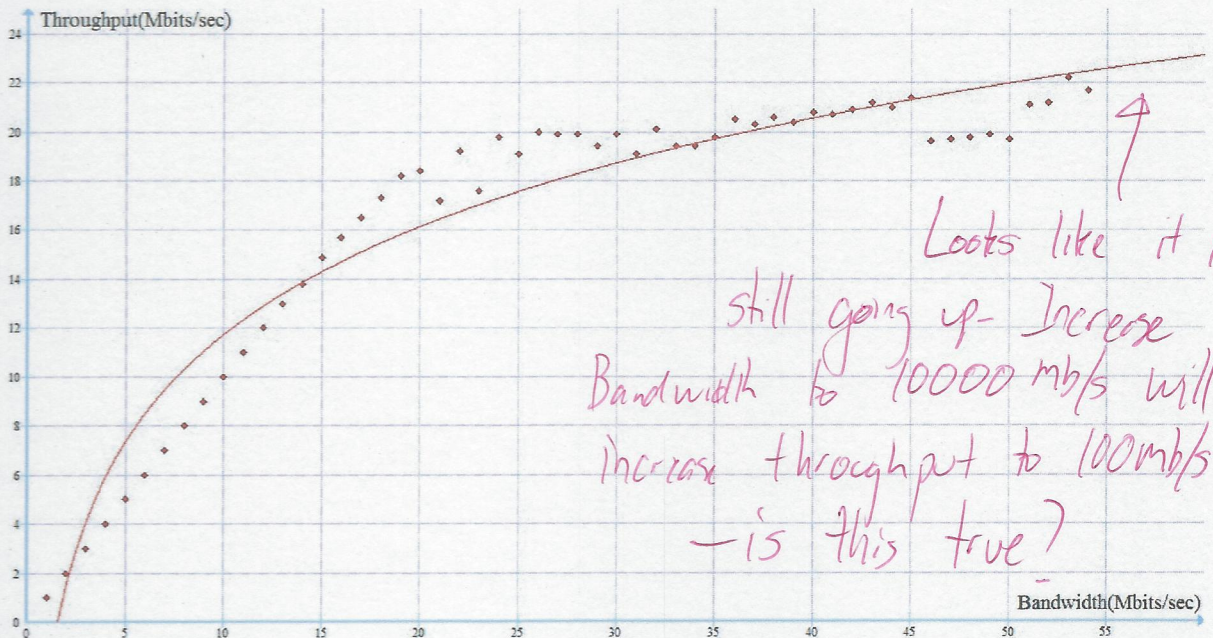 Throughput(Mbits/sec)
24
22
20
18
16
14
12
10
8
6
4
2
0
Looks like it
still going up - Increase
Bandwidth to 10000 mb/s will
increase throughput to 100mb/s
- is this true?
Bandwidth(Mbits/sec)
0 5 10 15 20 25 30 35 40 45 50 55